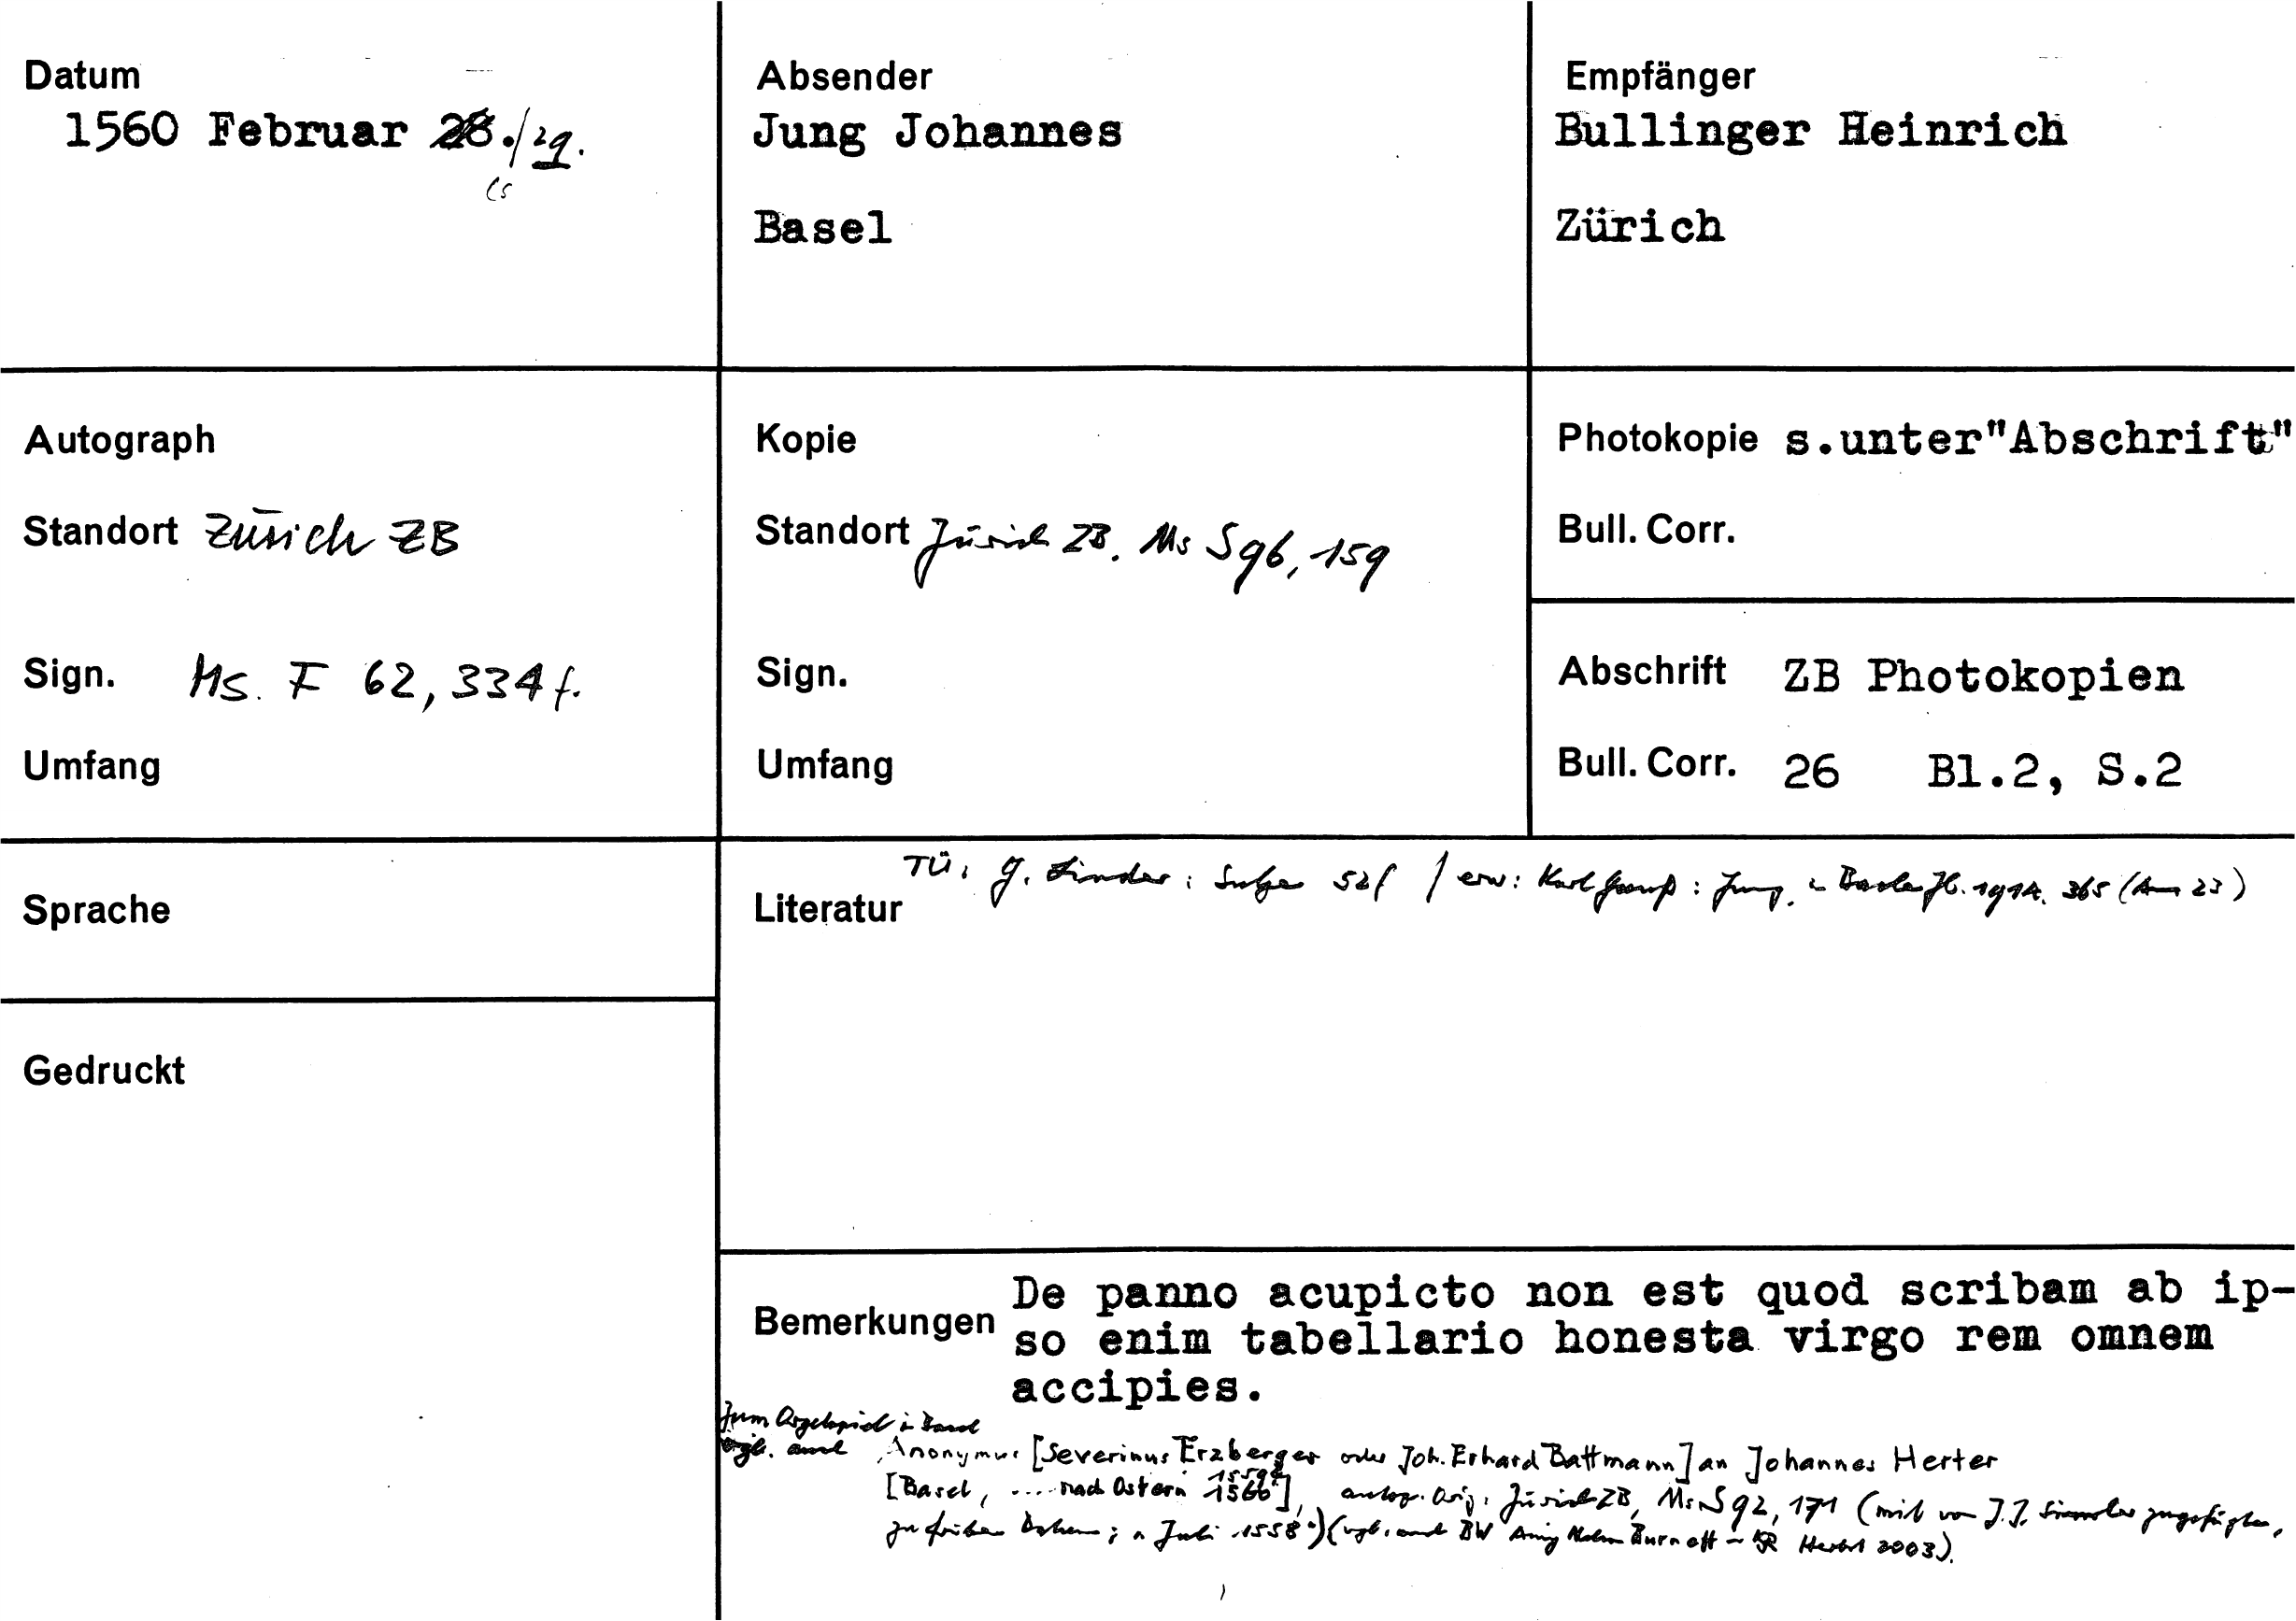 Datum
1560 Februar 28./29.
Absender
Jung Johannes
Basel
Empfänger
Bullinger Heinrich
Zürich
Autograph
Standort Zürich ZB
Sign. Ms. F 62, 334 f.
Umfang
Kopie
Standort Zürich ZB. Ms S 96, 159
Sign.
Umfang
Photokopie s.unter"Abschrift"
Bull. Corr.
Abschrift ZB Photokopien
Bull. Corr. 26 Bl.2, S.2
Sprache
Gedruckt
TÜ: G. Linder: Sulzer 52f / erw: Karl Gauß: Jung. 1914. 365 (Anm 23)
Literatur
Bemerkungen
De panno acupicto non est quod scribam ab ip-
so enim tabellario honesta virgo rem omnem
accipies.
Zum Orgelspiel in Basel
vgl. auch Anonymus [Severinus Erzberger oder Joh. Erhard Battmann] an Johannes Herter
[Basel, .... nach Ostern 1560], autogr. Orig. Zürich ZB, Ms S 92, 171 (mit von J. J. Simler zugefügten,
Juli 1558) (vgl. auch BW Burnett - Herbst 2003).